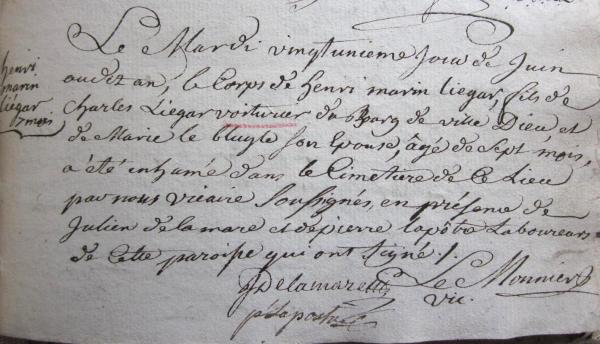 henri
marin
liégar
7 mois
Le Mardi vingtunieme jour de Juin
audit an, le Corps de henri marin liégar, fils de
Charles Liégar voiturier du Bourg de ville Dieu et
de Marie le son Epouse, âgé de sept mois,
a été inhumé dans le Cimetiere de Ce Lieu
par nous vicaire soussignés en présence de
Julien delamare et de pierre lapôtre Laboureurs
de Cette paroisse qui ont signé /.
J Delamare Le Monnier
p lapostre vic.